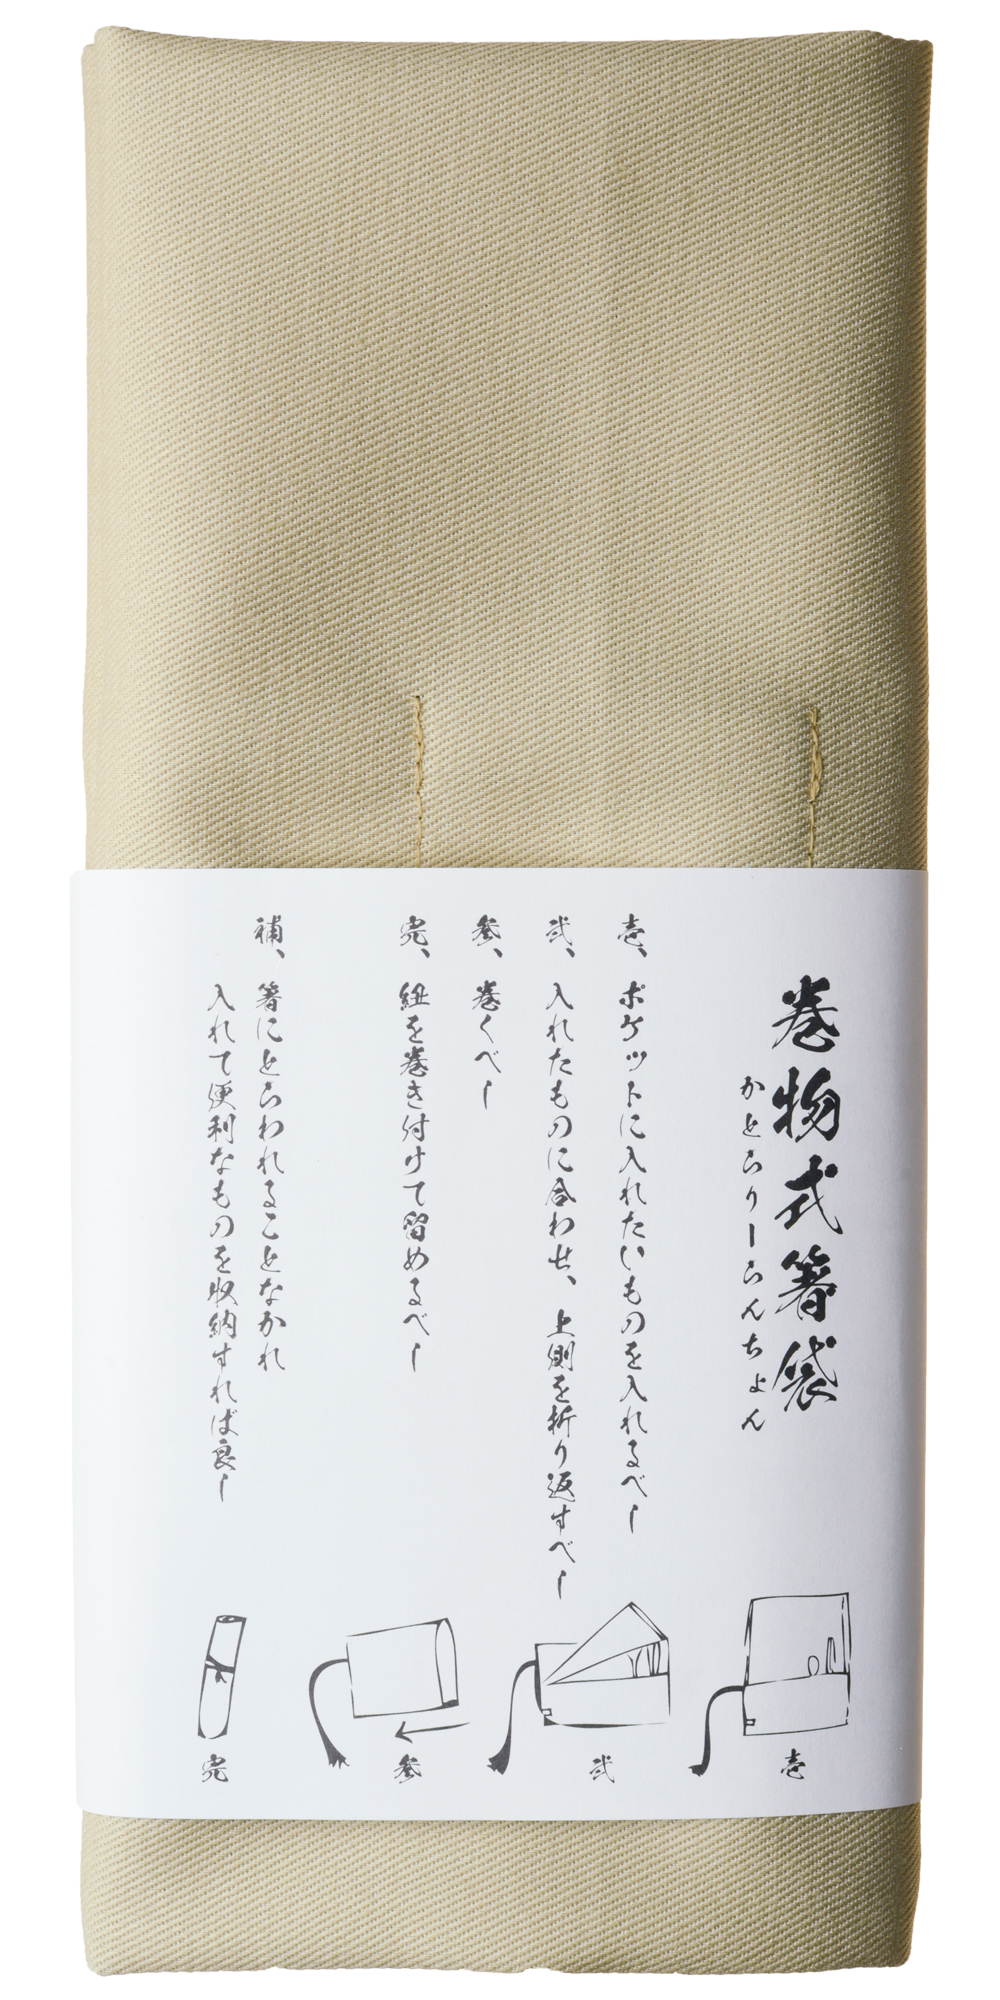 巻物式箸袋
かとらりーらんちょん
壱、ポケットに入れたいものを入れるべし
弐、入れたものに合わせ、上側を折り返すべし
参、巻くべし
完、紐を巻き付けて留めるべし
補、箸にとらわれることなかれ
入れて便利なものを収納すれば良し
壱
弐
参
完